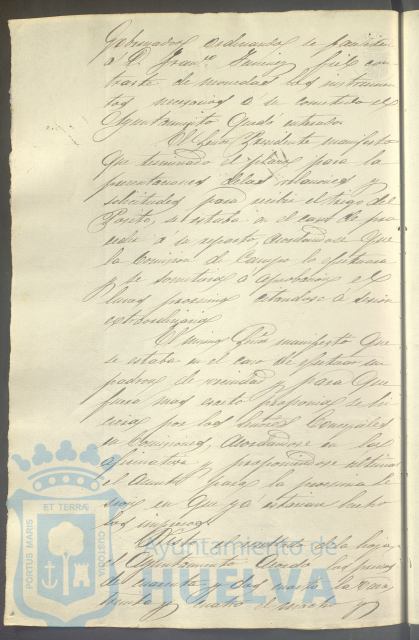 Gobernador ordenando se facilite
a D. Franco. Jimenez fiel con-
traste de monedas los instrumen-
tos necesarios a su cometido el
Ayuntamiento quedó enterado
El Señor Presidente manifestó
que terminado el plazo para la
presentaciones de las relaciones y
solicitudes para recibir el trigo del
Posito, se estaba en el caso de pro-
ceder á su reparto, acordandose que
la Comision de Campo lo efectuara
y se sometiera á aprobacion el
lunes proximo citandose á Sesion
extraordinaria
El mismo Señor manifestó que
se estaba en el caso de efectuar un
padron de vecindad y para que
fuera mas esacto proponia se hi-
ciera por los Señores Concejales
en Comisiones, acordandose en la
afirmativa y proponiendose ultimar
el asunto para la proxima Se-
sion en que ya estarian hechos
los impresos
el Ayuntamiento acordó
de cuarenta y dos
y cuatro
PORTUS MARIS
ET TERRÆ
CUSTODIA
Ayuntamiento de
HUELVA